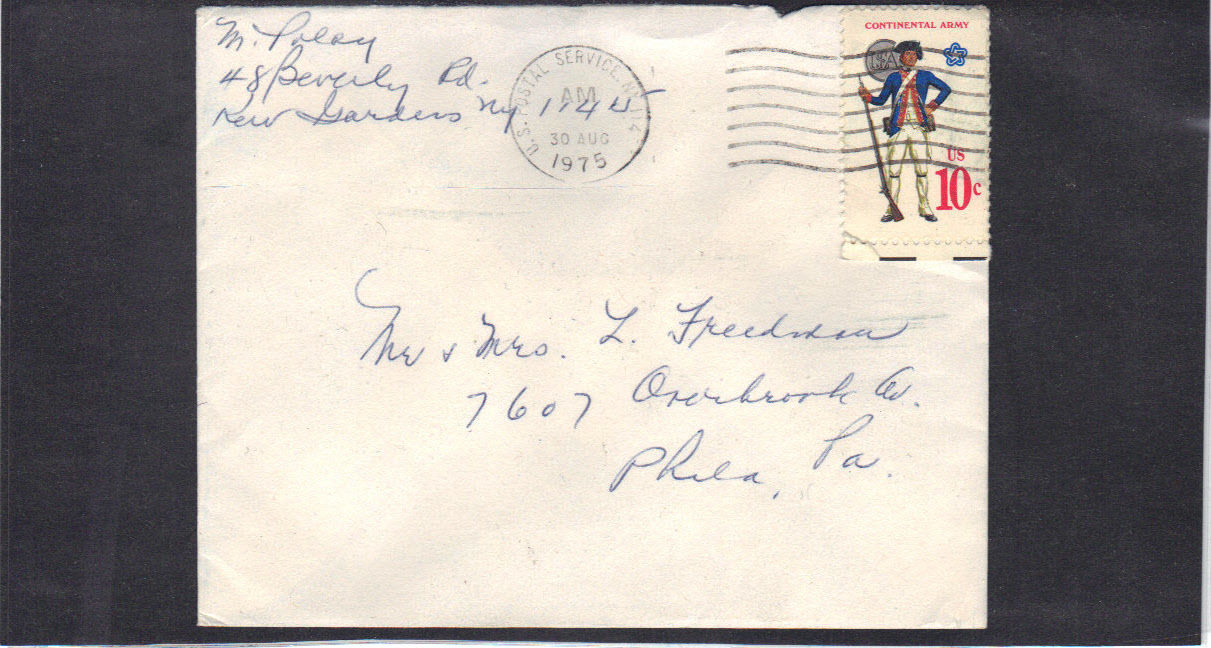 M. Polay
48 Beverly Rd.
Kew Gardens Ny
U.S. POSTAL SERVICE, NY 114
AM
30 AUG
1975
CONTINENTAL ARMY
USA
US
10c
Mr & Mrs. L. Freedman
7607 Overbrook Av.
Phila, Pa.